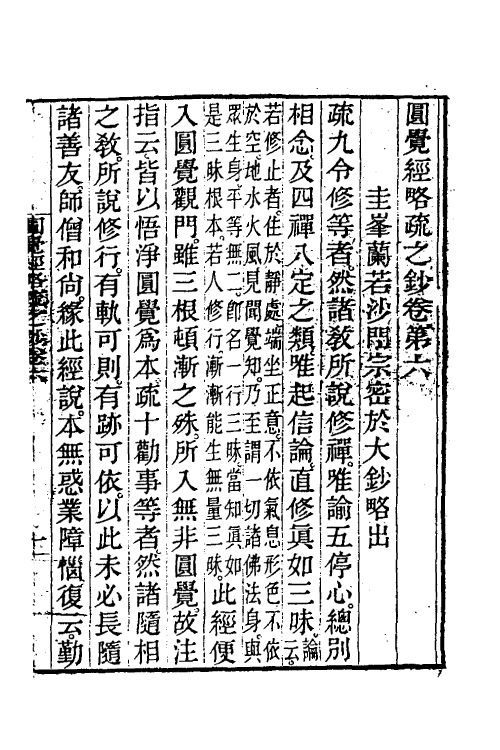 圓覺經略疏之鈔卷第六
圭峯蘭若沙門宗密於大鈔略出
疏九令修等者。然諸敎所說修禪。唯論五停心。總別
相念。及四禪八定之類。唯起信論。直修眞如三昧。論云。
若修止者。住於靜處。端坐正意。不依氣息形色。不依
於空。地水火風。見聞覺知。乃至謂一切諸佛法身。與
眾生身。平等無二。卽名一行三昧。當知眞如
是三昧根本。若人修行。漸漸能生無量三昧。此經便
入圓覺觀門。雖三根頓漸之殊。所入無非圓覺。故注
指云。皆以悟淨圓覺爲本。疏十勸事等者。然諸隨相
之敎。所說修行。有軌可則。有跡可依。以此未必長隨
諸善友。師僧和尙。緣此經說。本無惑業障惱。復云。勤